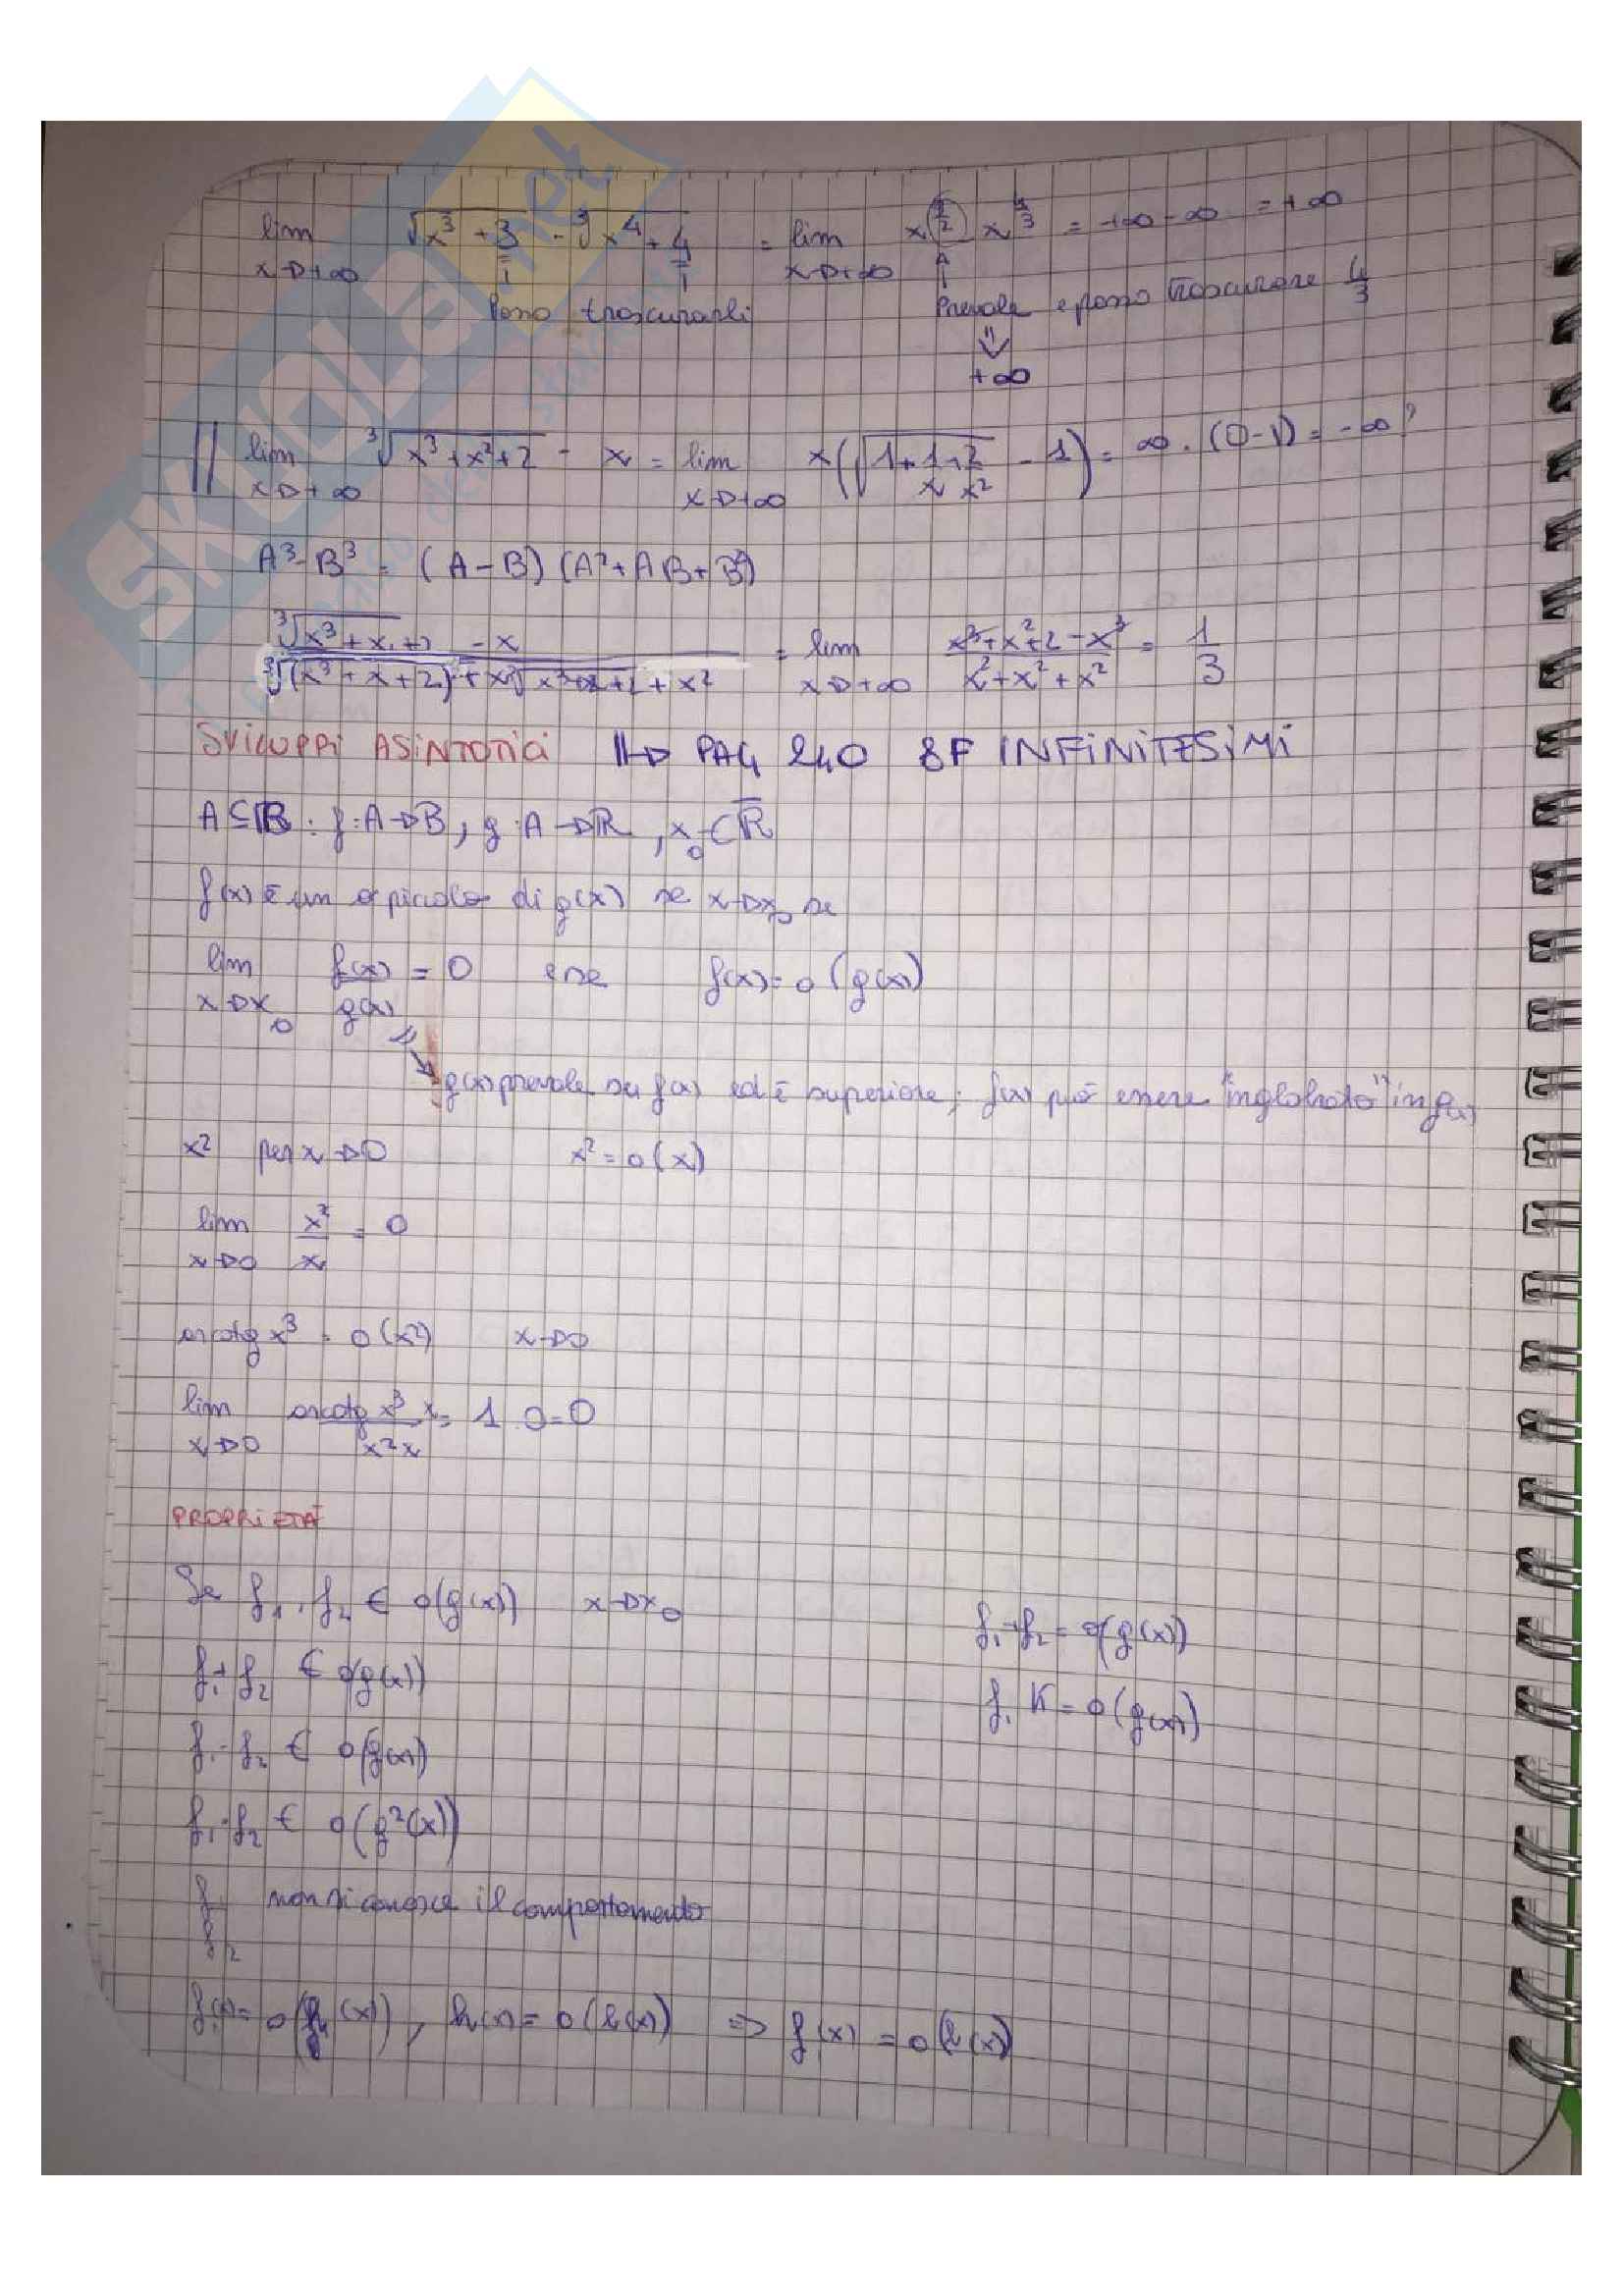 lim √x³+3 - ³√x⁴+4 = lim x^(3/2) - x^(4/3) = +∞-∞ = +∞
x→+∞ x→+∞
Posso trascurarli Prevale e posso trascurare 4/3
⇓
+∞
lim ³√x³+x²+2 - x = lim x(√1+1/x+2/x² - 1) = ∞·(0-1) = -∞?
x→+∞ x→+∞
A³-B³ = (A-B)(A²+AB+B²)
³√x³+x+2 - x / ³√(x³+x+2)² + x³√x³+x+2 + x² = lim x→+∞ x³+x²+2-x³ / x²+x²+x² = 1/3
SVILUPPI ASINTOTICI PAG 240 8F INFINITESIMI
A⊆R : f:A→R, g:A→R, x₀∈R̅
f(x) è un o piccolo di g(x) se x→x₀ se
lim f(x)/g(x) = 0 e se f(x)=o(g(x))
x→x₀
g(x) prevale su f(x) ed è superiore; f(x) può essere "inglobato" in g(x)
x² per x→0 x²=o(x)
lim x²/x = 0
x→0
arctg x³ = o(x²) x→0
lim arctg x³ x / x² x = 1·0=0
x→0
PROPRIETÀ
Se f₁, f₂ ∈ o(g(x)) x→x₀
f₁+f₂ = o(g(x))
f₁+f₂ ∈ o(g(x))
f₁ K = o(g(x))
f₁-f₂ ∈ o(g(x))
f₁·f₂ ∈ o(g²(x))
f₁/f₂ non si conosce il comportamento
f(x)= o(h(x)), h(x)= o(l(x)) ⇒ f(x) = o(l(x))
SKUOLA.net